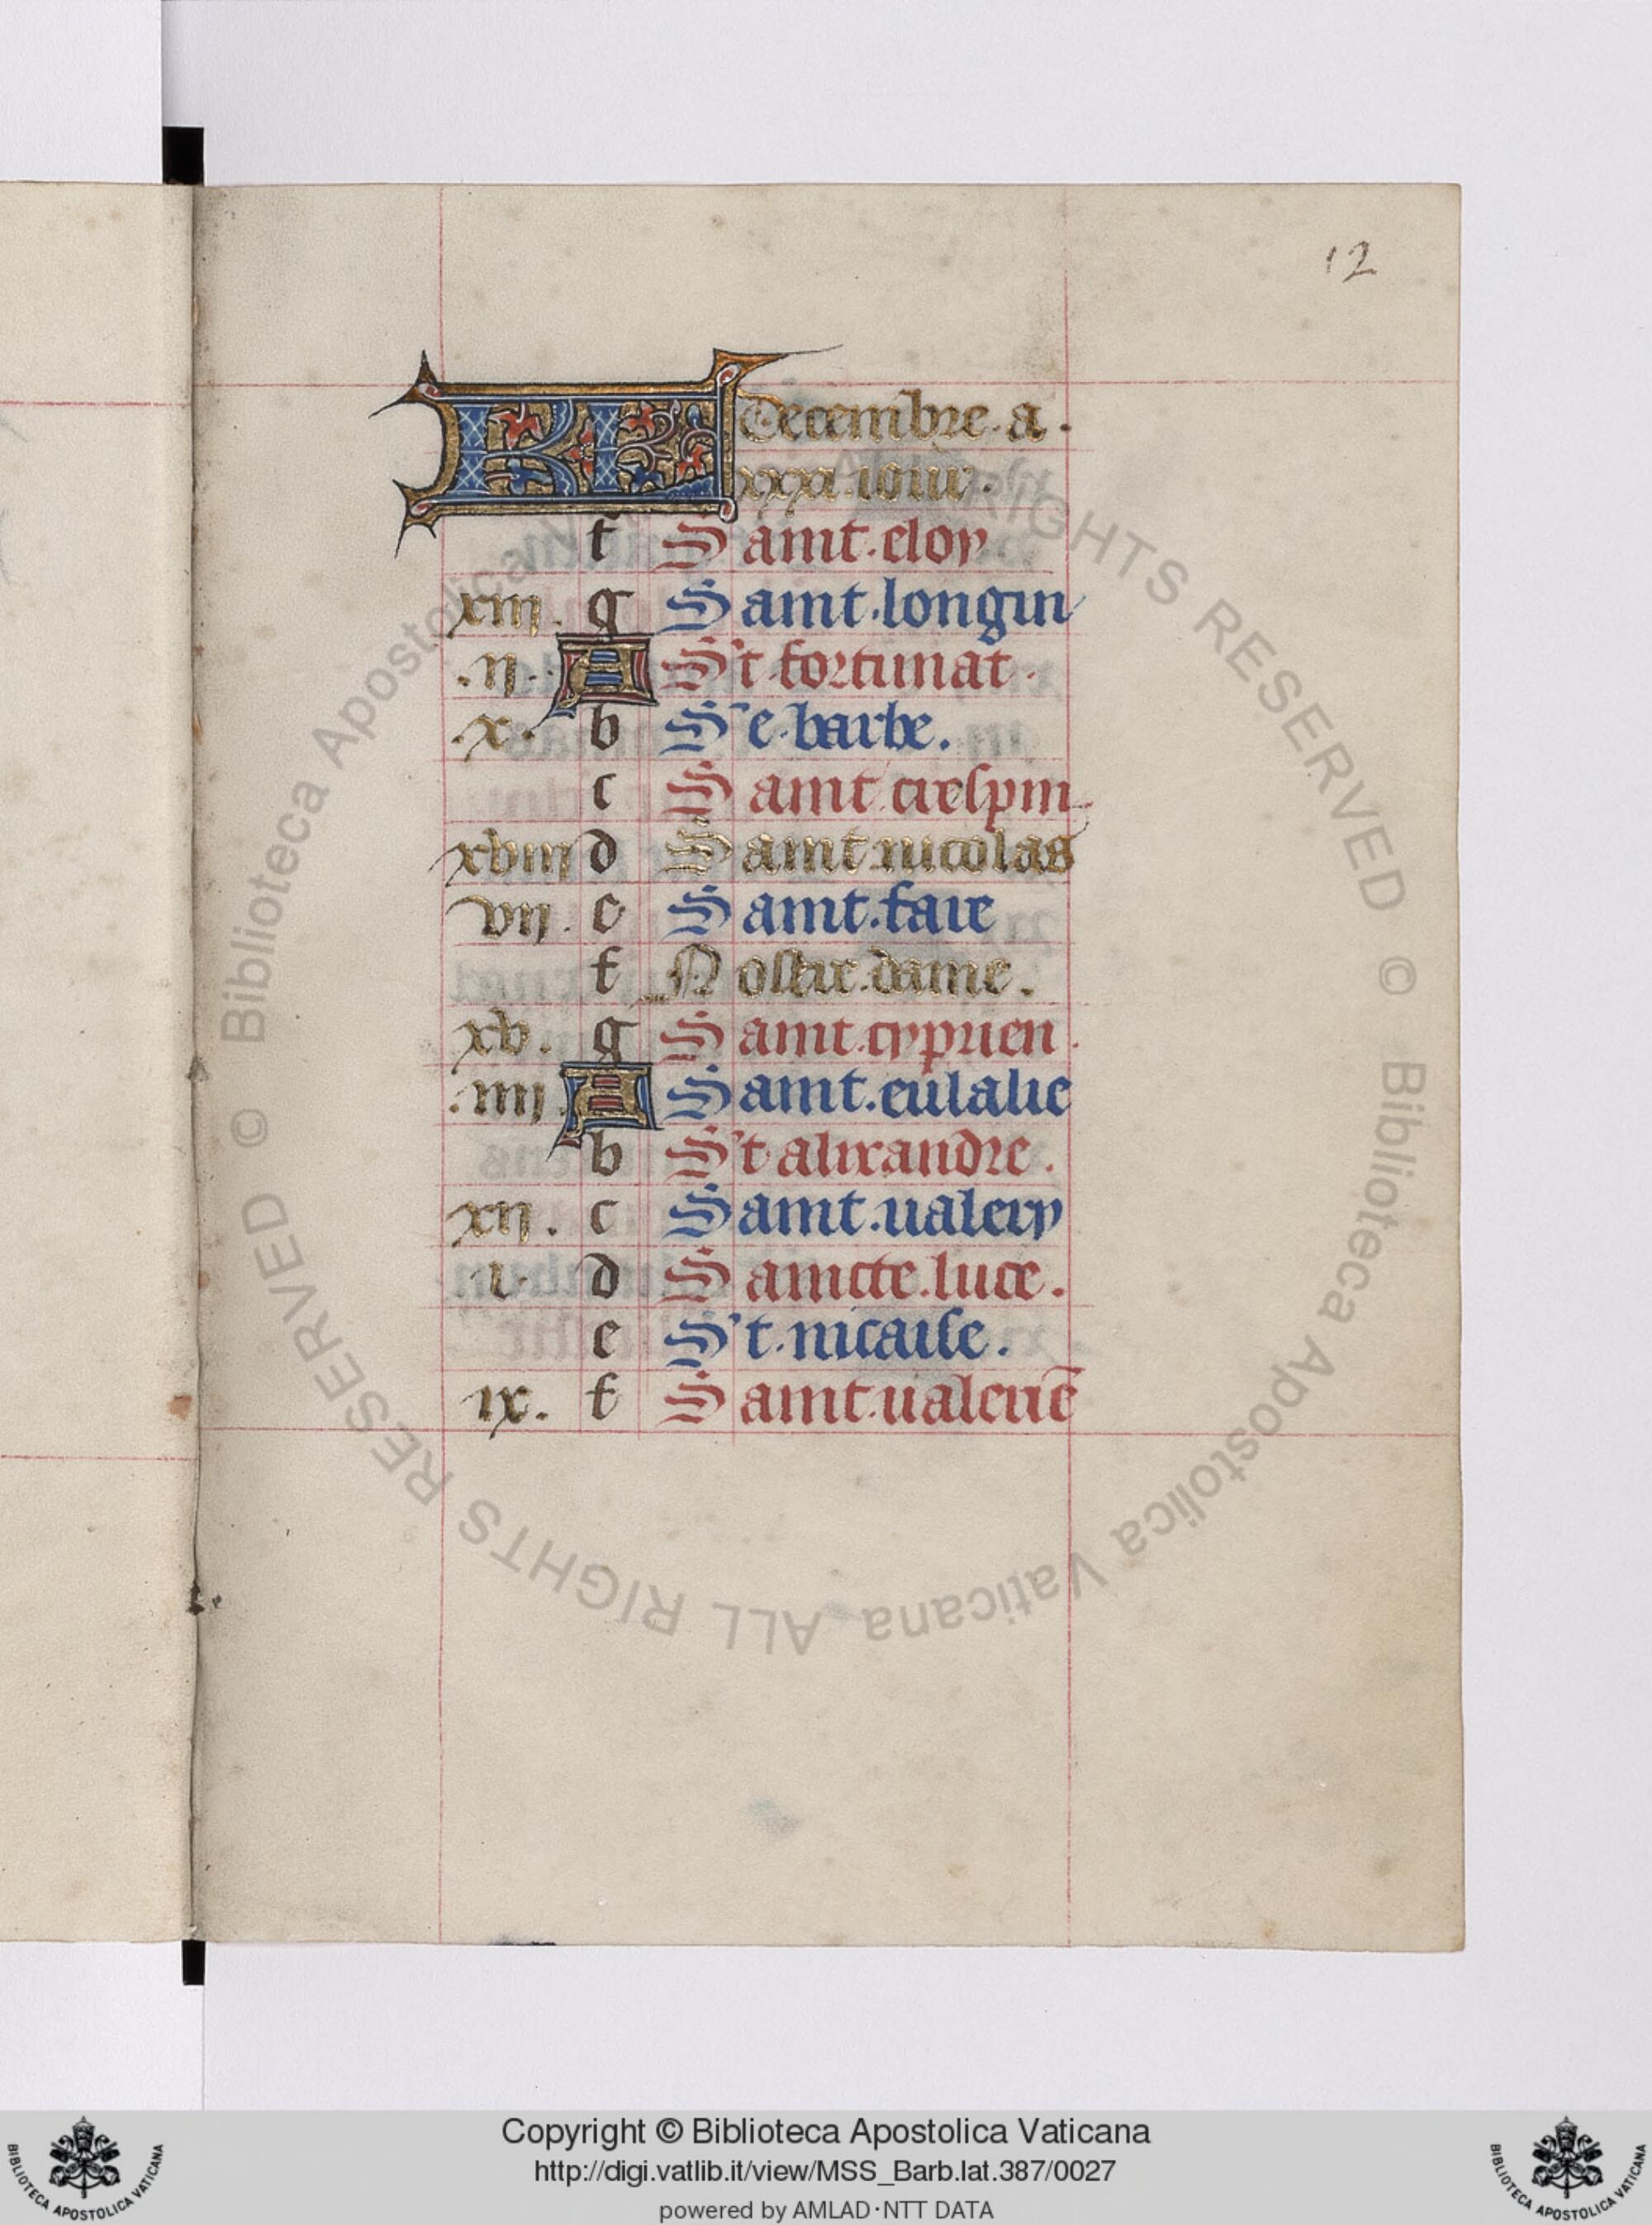 12
KL Decembre. a.
xxxi. iour.
f Saint. eloy
xiii. g Saint. longin
.ii. A S't fortunat.
.x. b S'e. barbe.
c Saint crespin
xviii d Saint nicolas
vii. e Saint. fare
f Nostre. dame.
xv. g Saint. cyprien.
.iiii. A Saint. eulalie
b S't alixandre.
xii. c Saint. ualery
.i. d Saincte. luce.
e S't. nicaise.
ix. f Saint. ualeriē
© Biblioteca Apostolica Vaticana ALL RIGHTS RESERVED © Biblioteca Apostolica Vaticana ALL RIGHTS RESERVED
Copyright © Biblioteca Apostolica Vaticana
http://digi.vatlib.it/view/MSS_Barb.lat.387/0027
powered by AMLAD·NTT DATA
BIBLIOTECA APOSTOLICA VATICANA
BIBLIOTECA APOSTOLICA VATICANA